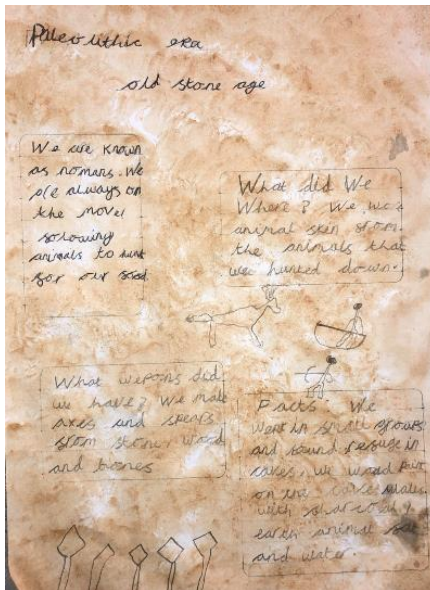 Paleolithic era
old stone age
We are known
as nomans. We
are always on
the move!
solowing
animals to hunt
for our food
What did We
Where? We wore
animal skin from
the animals that
we hunted down.
What wepons did
we have? We make
axes and spears
from stones wood
and bones
Facts We
went in small groups
and found resuge in
caves. we would
on the caves walls
with sharcoal,
earth animal
and water.